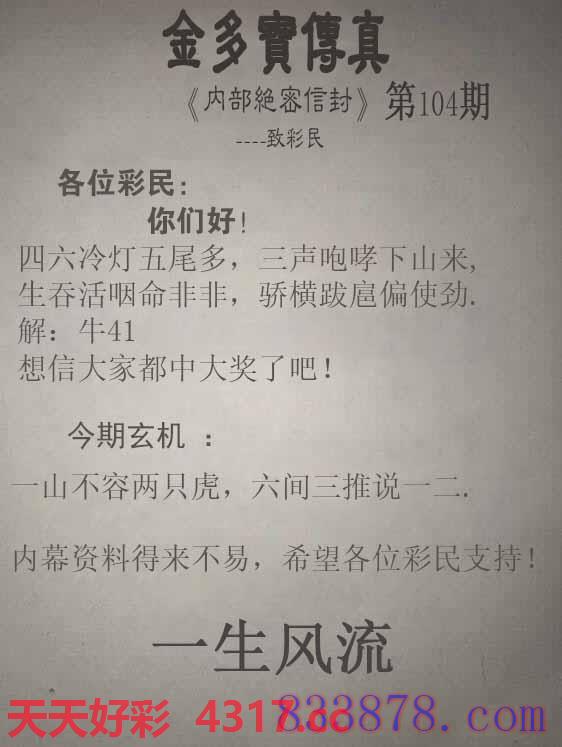 金多寶傳真
《内部絶密信封》第104期
----致彩民
各位彩民:
你们好!
四六冷灯五尾多，三声咆哮下山来,
生吞活咽命非非，骄横跋扈偏使劲.
解：牛41
想信大家都中大奖了吧!
今期玄机 :
一山不容两只虎，六间三推说一二.
内幕资料得来不易，希望各位彩民支持!
一生风流
天天好彩 4317.cc
833878.com